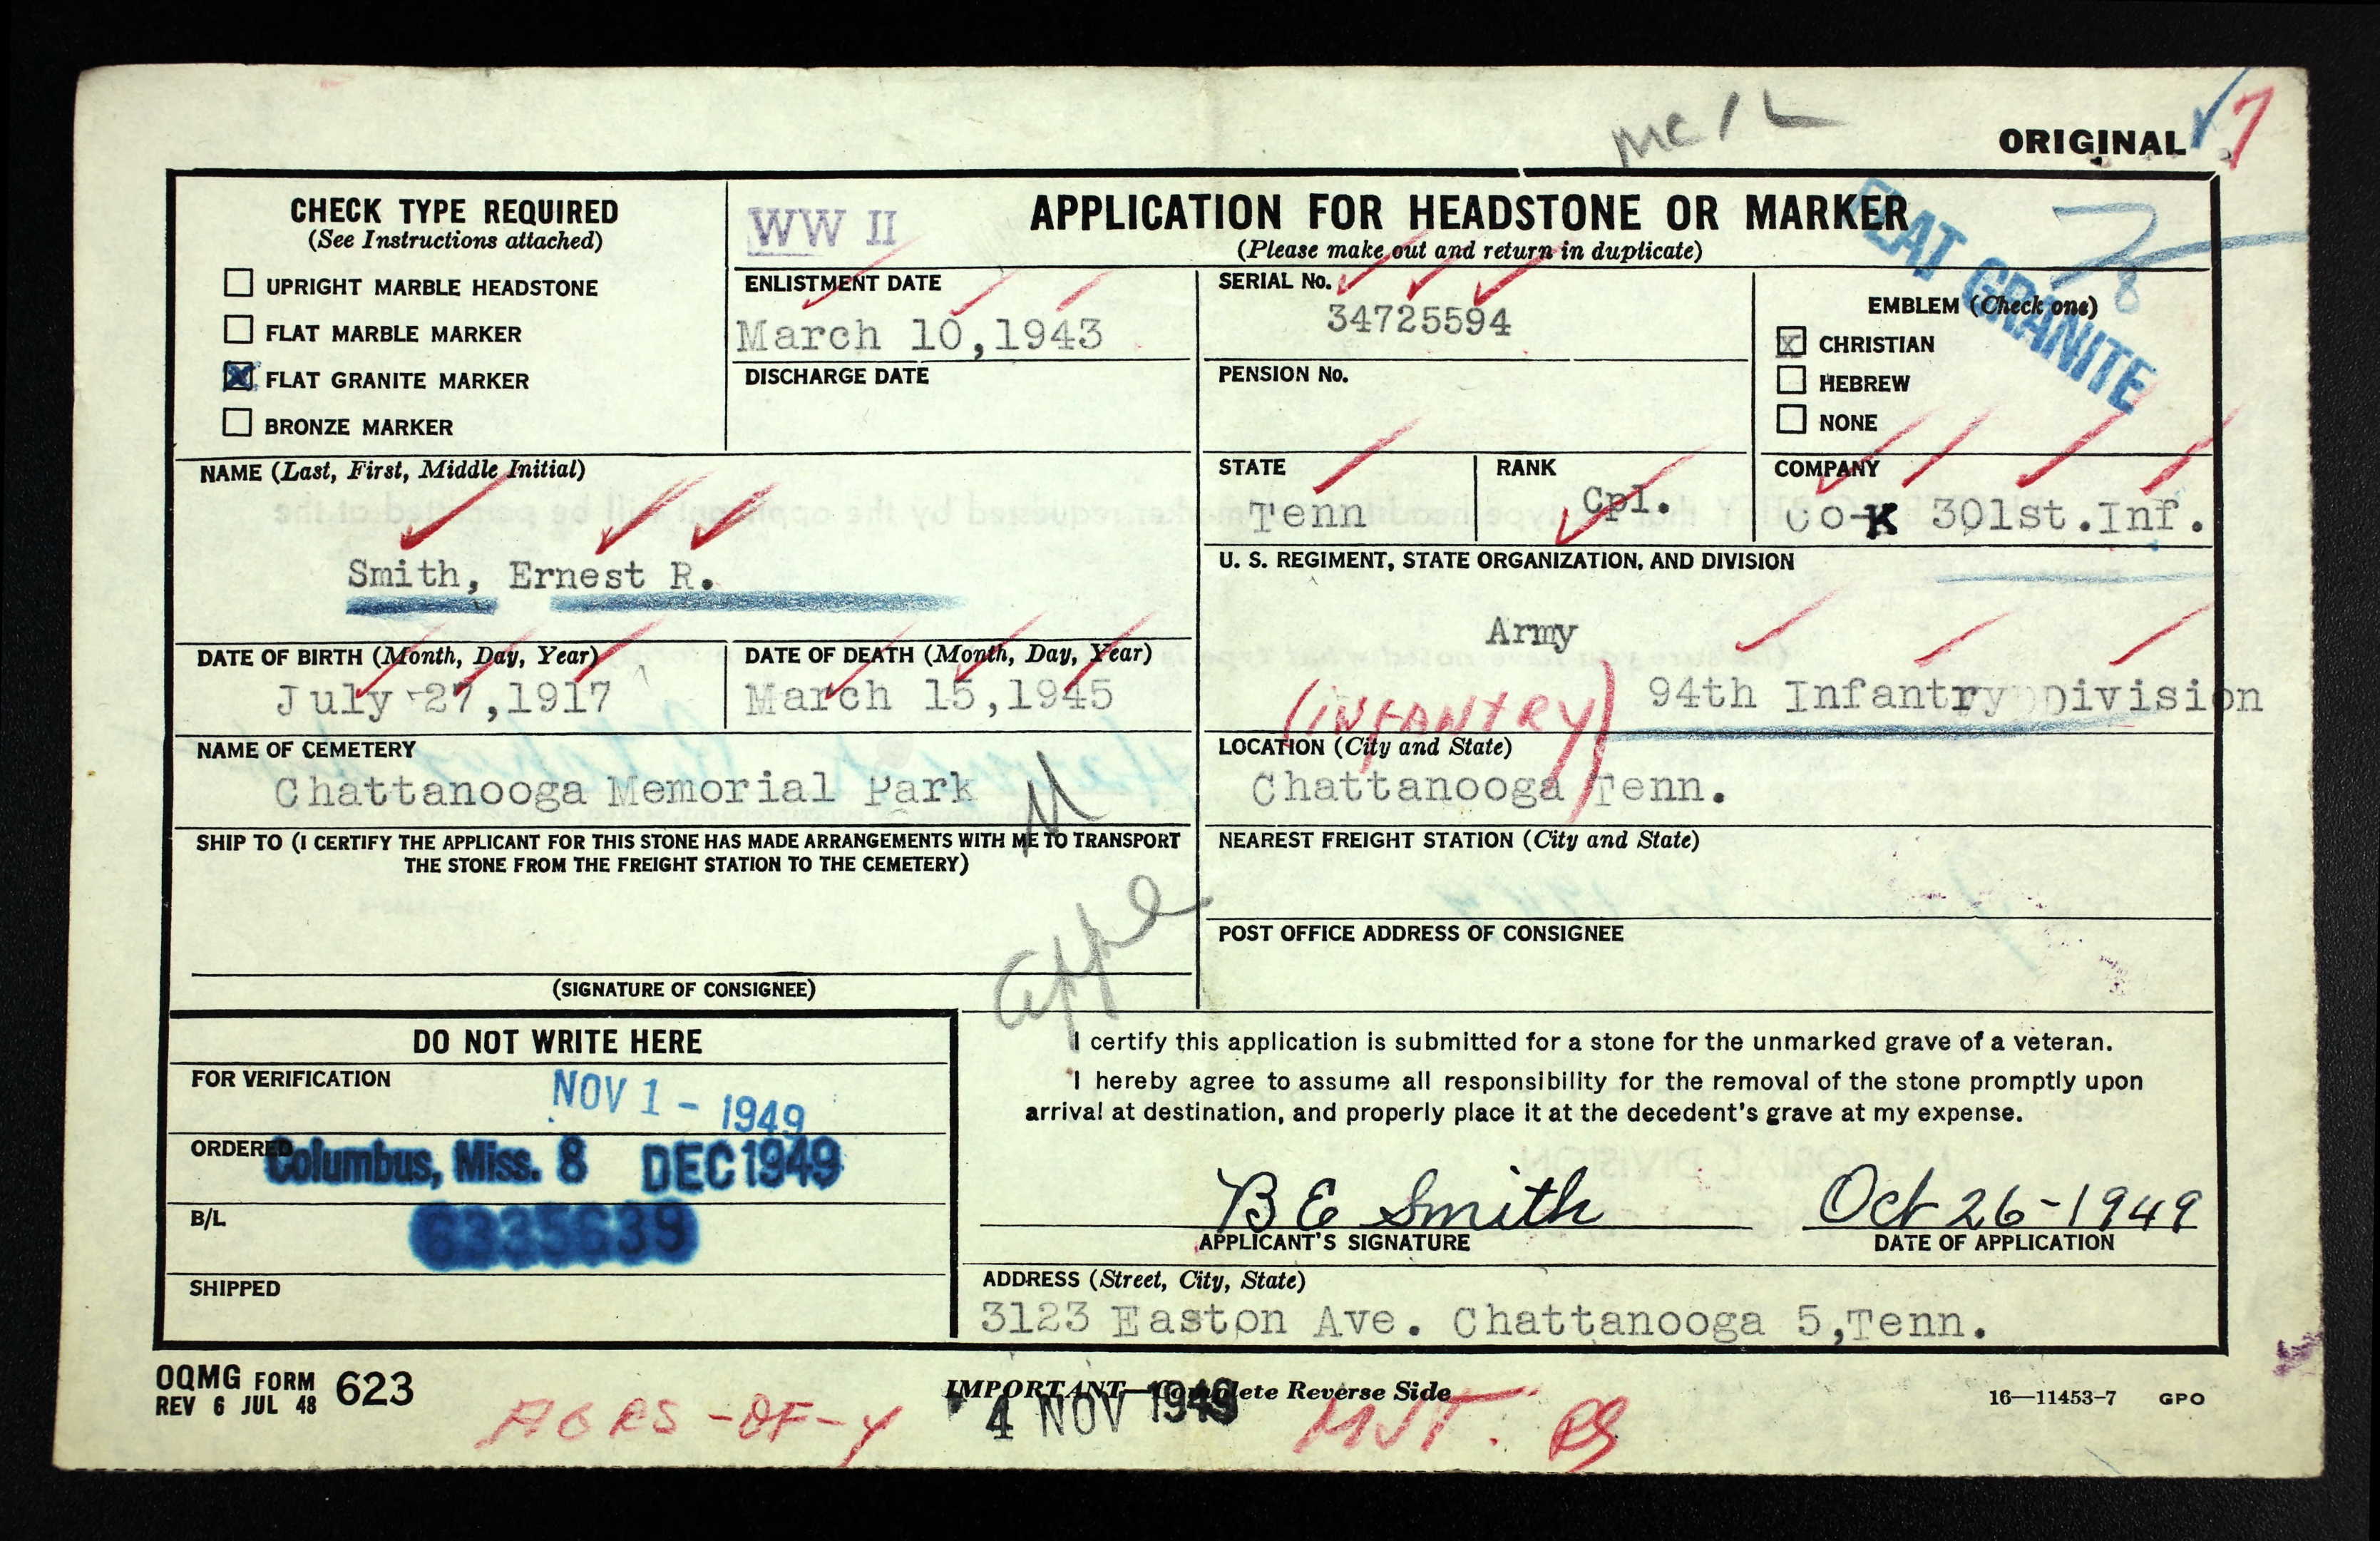 mc / L
ORIGINAL ✓ 7
CHECK TYPE REQUIRED
(See Instructions attached)
UPRIGHT MARBLE HEADSTONE
FLAT MARBLE MARKER
X FLAT GRANITE MARKER
BRONZE MARKER
WW II
APPLICATION FOR HEADSTONE OR MARKER
(Please make out and return in duplicate)
FLAT GRANITE
ENLISTMENT DATE
March 10,1943
DISCHARGE DATE
SERIAL No.
34725594
PENSION No.
EMBLEM (Check one)
X CHRISTIAN
HEBREW
NONE
NAME (Last, First, Middle Initial)
Smith, Ernest R.
STATE
Tenn
RANK
Cpl.
COMPANY
Co-K 301st.Inf.
U. S. REGIMENT, STATE ORGANIZATION, AND DIVISION
Army
(INFANTRY) 94th Infantry Division
DATE OF BIRTH (Month, Day, Year)
July 27,1917
DATE OF DEATH (Month, Day, Year)
March 15,1945
NAME OF CEMETERY
Chattanooga Memorial Park
LOCATION (City and State)
Chattanooga Tenn.
SHIP TO (I CERTIFY THE APPLICANT FOR THIS STONE HAS MADE ARRANGEMENTS WITH ME TO TRANSPORT
THE STONE FROM THE FREIGHT STATION TO THE CEMETERY)
NEAREST FREIGHT STATION (City and State)
POST OFFICE ADDRESS OF CONSIGNEE
(SIGNATURE OF CONSIGNEE)
DO NOT WRITE HERE
FOR VERIFICATION
NOV 1 - 1949
ORDERED
Columbus, Miss. 8 DEC 1949
B/L
6335639
SHIPPED
I certify this application is submitted for a stone for the unmarked grave of a veteran.
I hereby agree to assume all responsibility for the removal of the stone promptly upon
arrival at destination, and properly place it at the decedent's grave at my expense.
B E Smith Oct 26-1949
APPLICANT'S SIGNATURE DATE OF APPLICATION
ADDRESS (Street, City, State)
3123 Easton Ave. Chattanooga 5,Tenn.
OQMG FORM 623
REV 6 JUL 48
IMPORTANT—Complete Reverse Side
4 NOV 1949
16—11453-7 GPO